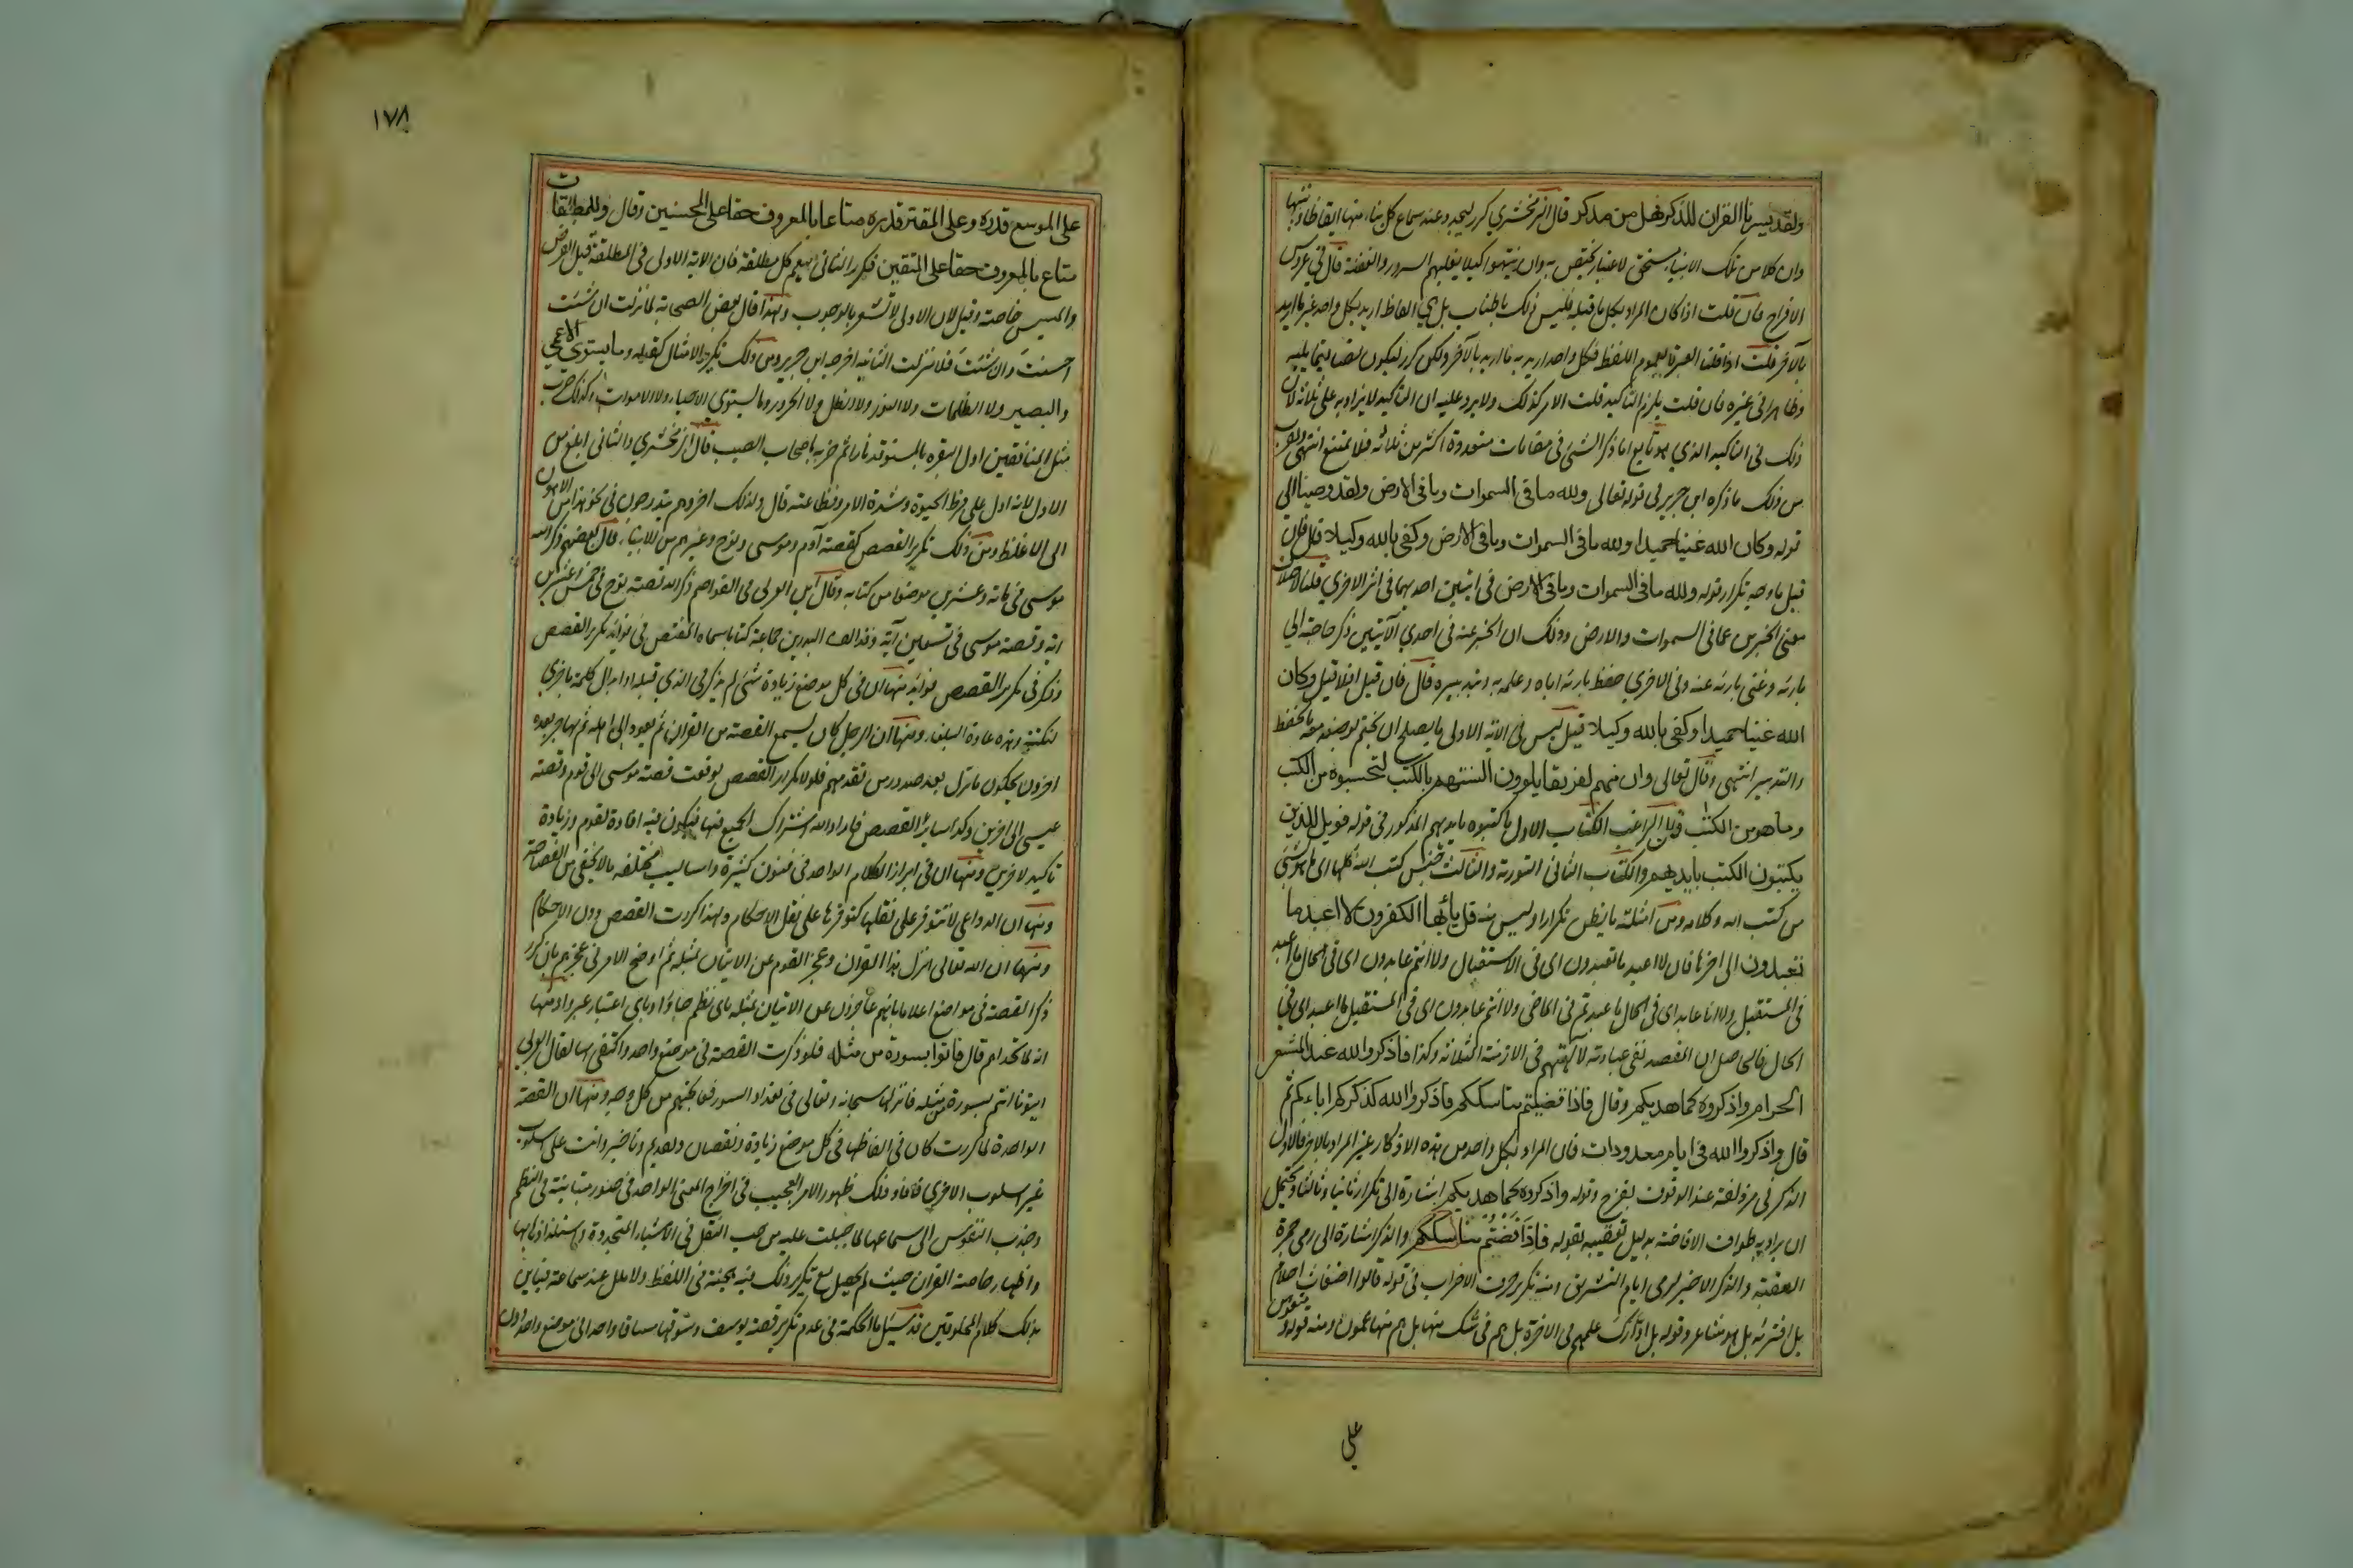 ولقد يسرنا القران للذكر فهل من مدكر قال الزمخشري كرر ليجدد وعند سماع كل بناء منها ايقاظا وتنبيها
وان كلا من تلك الانبياء مستحق لاعتبار يختص به وان يتنبهوا كيلا يغلبهم السرور والغفلة قال في عروس
الافراح فان قلت اذا كان المراد بكل ما قبله فليس ذلك باطناب بل هي الفاظ اريد بكل واحد غير ما اريد
بالآخر قلت اذا قلنا العبرة بعموم اللفظ فكل واحد اريد به ما اريد بالآخر ولكن كرر ليكون نصا فيما يليه
وظاهرا في غيره فان قلت يلزم التاكيد قلت الامر كذلك ولا يرد عليه ان التاكيد لا يزاد به على ثلاثة لان
ذلك في التاكيد الذي هو تابع اما ذكر الشئ في مقامات متعددة اكثر من ثلاثة فلا يمتنع انتهى ويقرب
من ذلك ما ذكره ابن جرير في قوله تعالى ولله ما في السموات وما في الارض ولقد وصينا الى
قوله وكان الله غنيا حميدا ولله ما في السموات وما في الارض وكفى بالله وكيلا قال فان
قيل ما وجه تكرار قوله ولله ما في السموات وما في الارض في اثنتين احديهما في اثر الاخري قلنا لاختلاف
معنى الخبرين عما في السموات والارض وذلك ان الخبر عنه في احدي الآيتين ذكر حاجته الى
بارئه وغنى بارئه عنه وفي الاخري حفظ بارئه اياه وعلمه به وتدبيره قال فان قيل افلا قيل وكان
الله غنيا حميدا وكفى بالله وكيلا قيل ليس في الآية الاولى ما يصلح ان يختم بوصفه معه بالحفظ
والتدبير انتهى وقال تعالى وان منهم لفريقا يلوون السنتهم بالكتب لتحسبوه من الكتب
وما هو من الكتب قال الراغب الكتاب الاول ما كتبوه بايديهم المذكور في قوله فويل للذين
يكتبون الكتب بايديهم والكتاب الثاني التورية والثالث جنس كتب الله كلها اي ما هو من شئ
من كتب الله وكلامه ومن امثلة ما يظن تكرارا وليس منه قل يايها الكفرون لا اعبد ما
تعبدون الى اخرها فان لا اعبد ما تعبدون اي في الاستقبال ولا انتم عابدون اي في الحال ما اعبد
في المستقبل ولا انا عابد اي في الحال ما عبدتم في الماضي ولا انتم عابدون اي في المستقبل ما اعبد اي في
الحال فالحاصل ان القصد نفي عبادته لآلهتهم في الازمنة الثلاثة وكذا فاذكروا الله عند المشعر
الحرام واذكروه كما هديكم وقال فاذا قضيتم مناسككم فاذكروا الله كذكركم اباءكم ثم
قال واذكروا الله في ايام معدودات فان المراد بكل واحد من هذه الاذكار غير المراد بالاخر فالاول
الذكر في مزدلفة عند الوقوف بقزح وقوله واذكروه كما هديكم اشارة الى تكراره ثانيا وثالثا ويحتمل
ان يراد به طواف الافاضة بدليل تعقيبه بقوله فاذا قضيتم مناسككم والذكر اشارة الى رمى جمرة
العقبة والذكر الاخير لرمى ايام التشريق ومنه تكرير حرف الاضراب في قوله قالوا اضغاث احلام
بل افتريه بل هو شاعر وقوله بل ادّارك علمهم في الاخرة بل هم في شك منها بل هم منها عمون ومنه قوله ومتعوهن
على
١٧٨
على الموسع قدره وعلى المقتر قدره متاعا بالمعروف حقا على المحسنين وقال وللمطلقات
متاع بالمعروف حقا على المتقين فكرر الثاني ليعم كل مطلقة فان الاية الاولى في المطلقة قبل الفرض
والمسيس خاصة وقيل لان الاولى لا تشعر بالوجوب ولهذا قال بعض الصحابة لما نزلت ان شئت
احسنت وان شئت فلا فنزلت الثانية اخرجه ابن جرير ومن ذلك تكرير الامثال كقوله وما يستوي الاعمي
والبصير ولا الظلمات ولا النور ولا الظل ولا الحرور وما يستوي الاحياء ولا الاموات وكذلك ضرب
مثل المنافقين اول البقره بالمستوقد نارا ثم ضربه باصحاب الصيب قال الزمخشري والثاني ابلغ من
الاول لانه ادل على فرط الحيرة وشدة الامر وفظاعته قال ولذلك اخروهم يتدرجون في نحو هذا من الاهون
الى الاغلظ ومن ذلك تكرير القصص كقصة آدم وموسى ونوح وغيرهم من الانبياء قال بعضهم ذكر الله
موسى في مائة وعشرين موضعا من كتابه وقال ابن العربي في القواصم ذكر الله قصة نوح في خمس وعشرين
اية وقصة موسى في تسعين آية وقد الف البدر بن جماعة كتابا سماه المقتص في فوائد تكرير القصص
وذكر في تكرير القصص فوائد منها ان في كل موضع زيادة شئ لم يذكر في الذي قبله او ابدال كلمة باخري
لنكتة وهذه عادة البلغاء ومنها ان الرجل كان يسمع القصة من القران ثم يعود الى اهله ثم يهاجر بعده
اخرون يحكون ما نزل بعد صدور من تقدمهم فلولا تكرار القصص لوقعت قصة موسى الى قوم وقصة
عيسى الى اخرين وكذا سائر القصص فاراد الله اشتراك الجميع فيها فيكون فيه افادة لقوم وزيادة
تاكيد لاخرين ومنها ان في ابراز الكلام الواحد في فنون كثيرة واساليب مختلفة ما لا يخفي من الفصاحة
ومنها ان الدواعي لا تتوفر على نقلها كتوفرها على نقل الاحكام ولهذا كررت القصص دون الاحكام
ومنها ان الله تعالى انزل هذا القران وعجز القوم عن الاتيان بمثله ثم اوضح الامر في عجزهم بان كرر
ذكر القصة في مواضع اعلاما بانهم عاجزون عن الاتيان بمثله باي نظم جاؤا وباي اعتبار عبروا ومنها
انه لما تحداهم قال فاتوا بسورة من مثله فلو ذكرت القصة في موضع واحد واكتفي بها لقال العربي
ايتونا انتم بسورة من مثله فانزلها سبحانه وتعالى في تعداد السور دفعا لحجتهم من كل وجه ومنها ان القصة
الواحدة لما كررت كان في الفاظها في كل موضع زيادة ونقصان وتقديم وتاخير واتت على اسلوب
غير اسلوب الاخري فافاد ذلك ظهور الامر العجيب في اخراج المعنى الواحد في صور متباينة في النظم
وجذب النفوس الى سماعها لما جبلت عليه من حب التنقل في الاشياء المتجددة واستلذاذها بها
واظهار خاصة القران حيث لم يحصل مع تكرير ذلك فيه هجنة في اللفظ ولا ملل عند سماعه فباين
بذلك كلام المخلوقين قد سئل ما الحكمة في عدم تكرير قصة يوسف وسوقها مساقا واحدا في موضع واحد دون